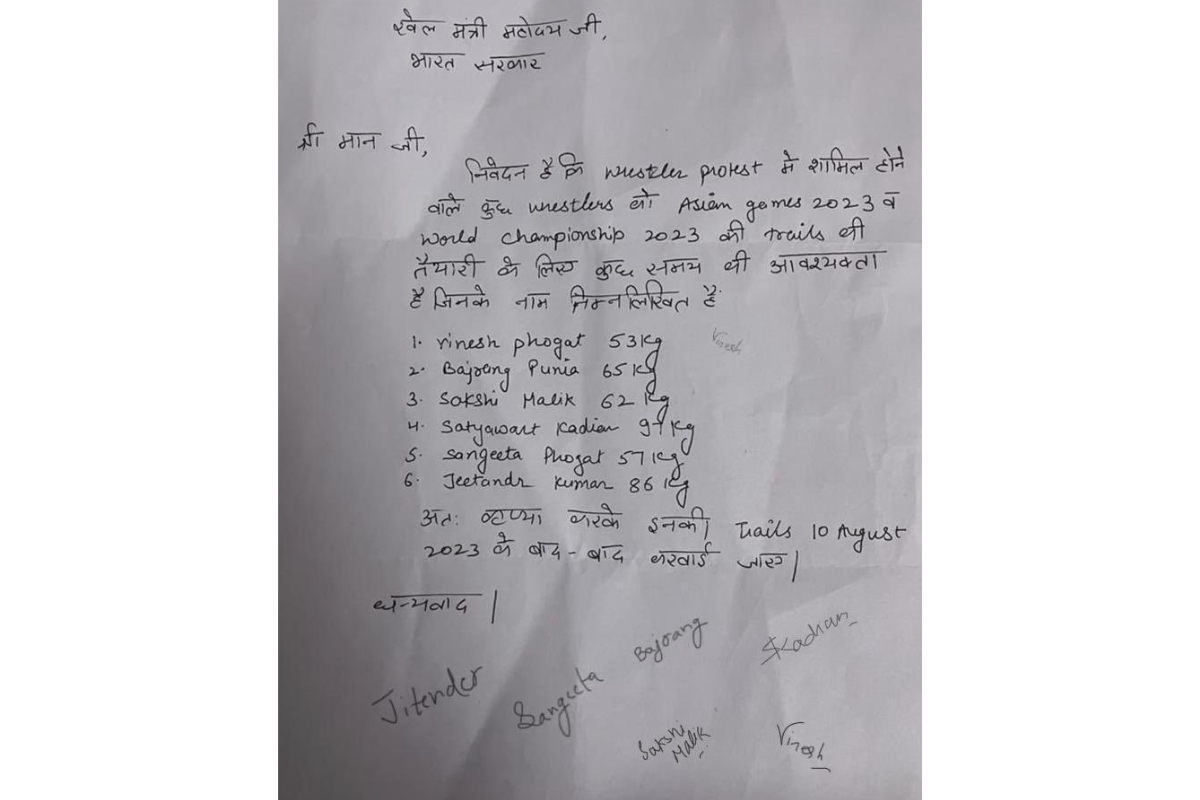 खेल मंत्री महोदय जी,
भारत सरकार
श्री मान जी,
निवेदन है कि wrestler protest मे शामिल होने
वाले कुछ wrestlers को Asian games 2023 व
World Championship 2023 की trails की
तैयारी के लिए कुछ समय की आवश्यकता
है जिनके नाम निम्नलिखित है
1. vinesh phogat 53kg Vinesh
2. Bajrang Punia 65kg
3. Sakshi Malik 62 kg
4. Satyawart Kadian 97kg
5. Sangeeta Phogat 57kg
6. Jeetandr Kumar 86 kg
अतः कृप्या करके इनकी Trails 10 August
2023 के बाद - बाद करवाई जाए|
धन्यवाद |
Jitender Sangeeta Bajrang SKadian
Sakshi Malik Vinesh